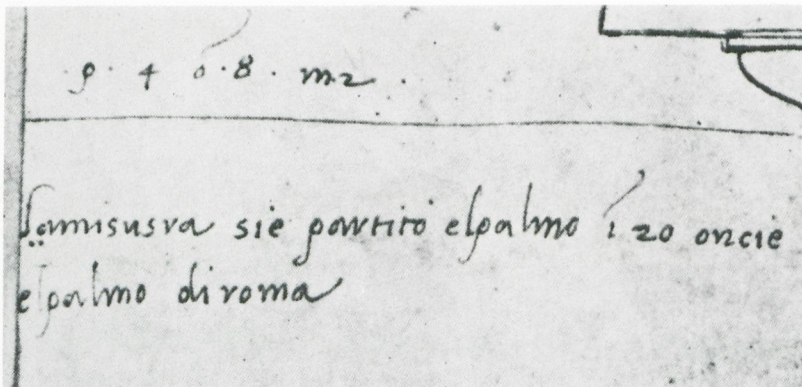 p · 4 o · 8 · m2 ·
Lamisusra sie partito elpalmo i 20 oncie
elpalmo di roma